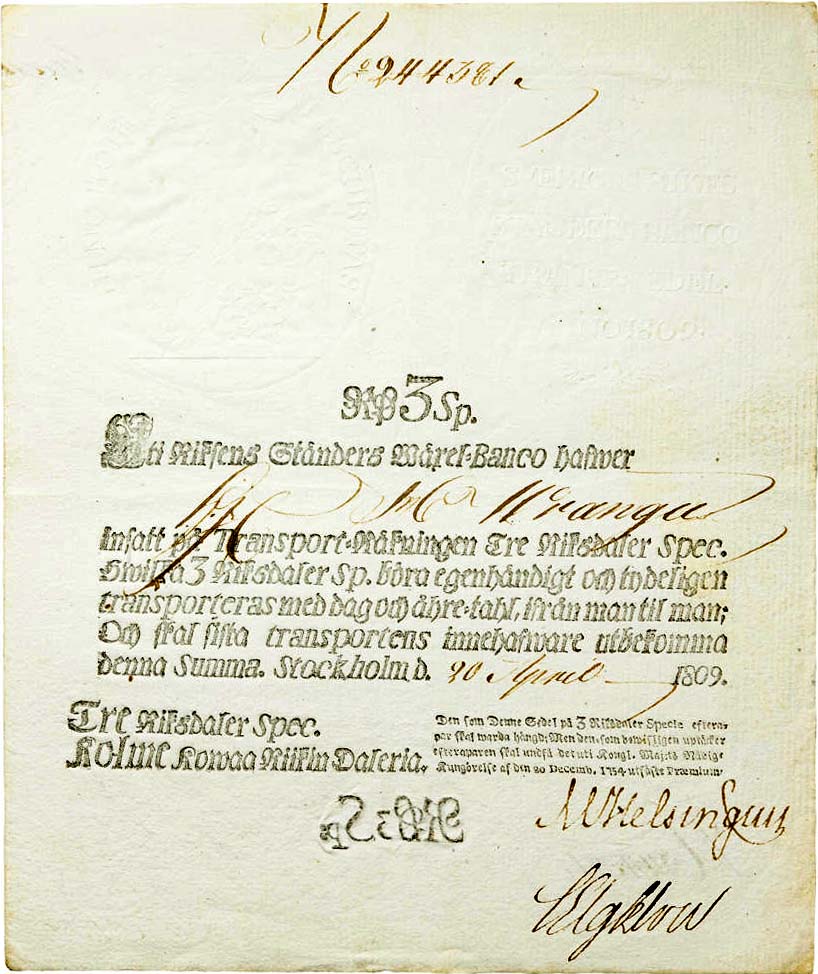 No 244381.
RD 3 Sp.
Uti Riksens Ständers Wäxel-Banco hafwer
Wrangel
Insatt på Transport-Räkningen Tre Riksdaler Spec.
Hwilka 3 Riksdaler Sp. böra egenhändigt och tydeligen
transporteras med dag och åhre-tahl, ifrån man til man;
Och skal sista transportens innehafware utbekomma
denna Summa. Stockholm d. 20 April 1809.
Tre Riksdaler Spec.
Kolme Kowaa Riikin Daleria.
Den som Denne Sedel på 3 Riksdaler Specie efterap-
par skal warda hängd; Men den, som bewisligen uptäcker
efteraparen skal undfå det uti Kongl. Maj:ts Nådige
Kungörelse af den 20 Decemb. 1754 utfäste Præmium.
RD 3 Sp.